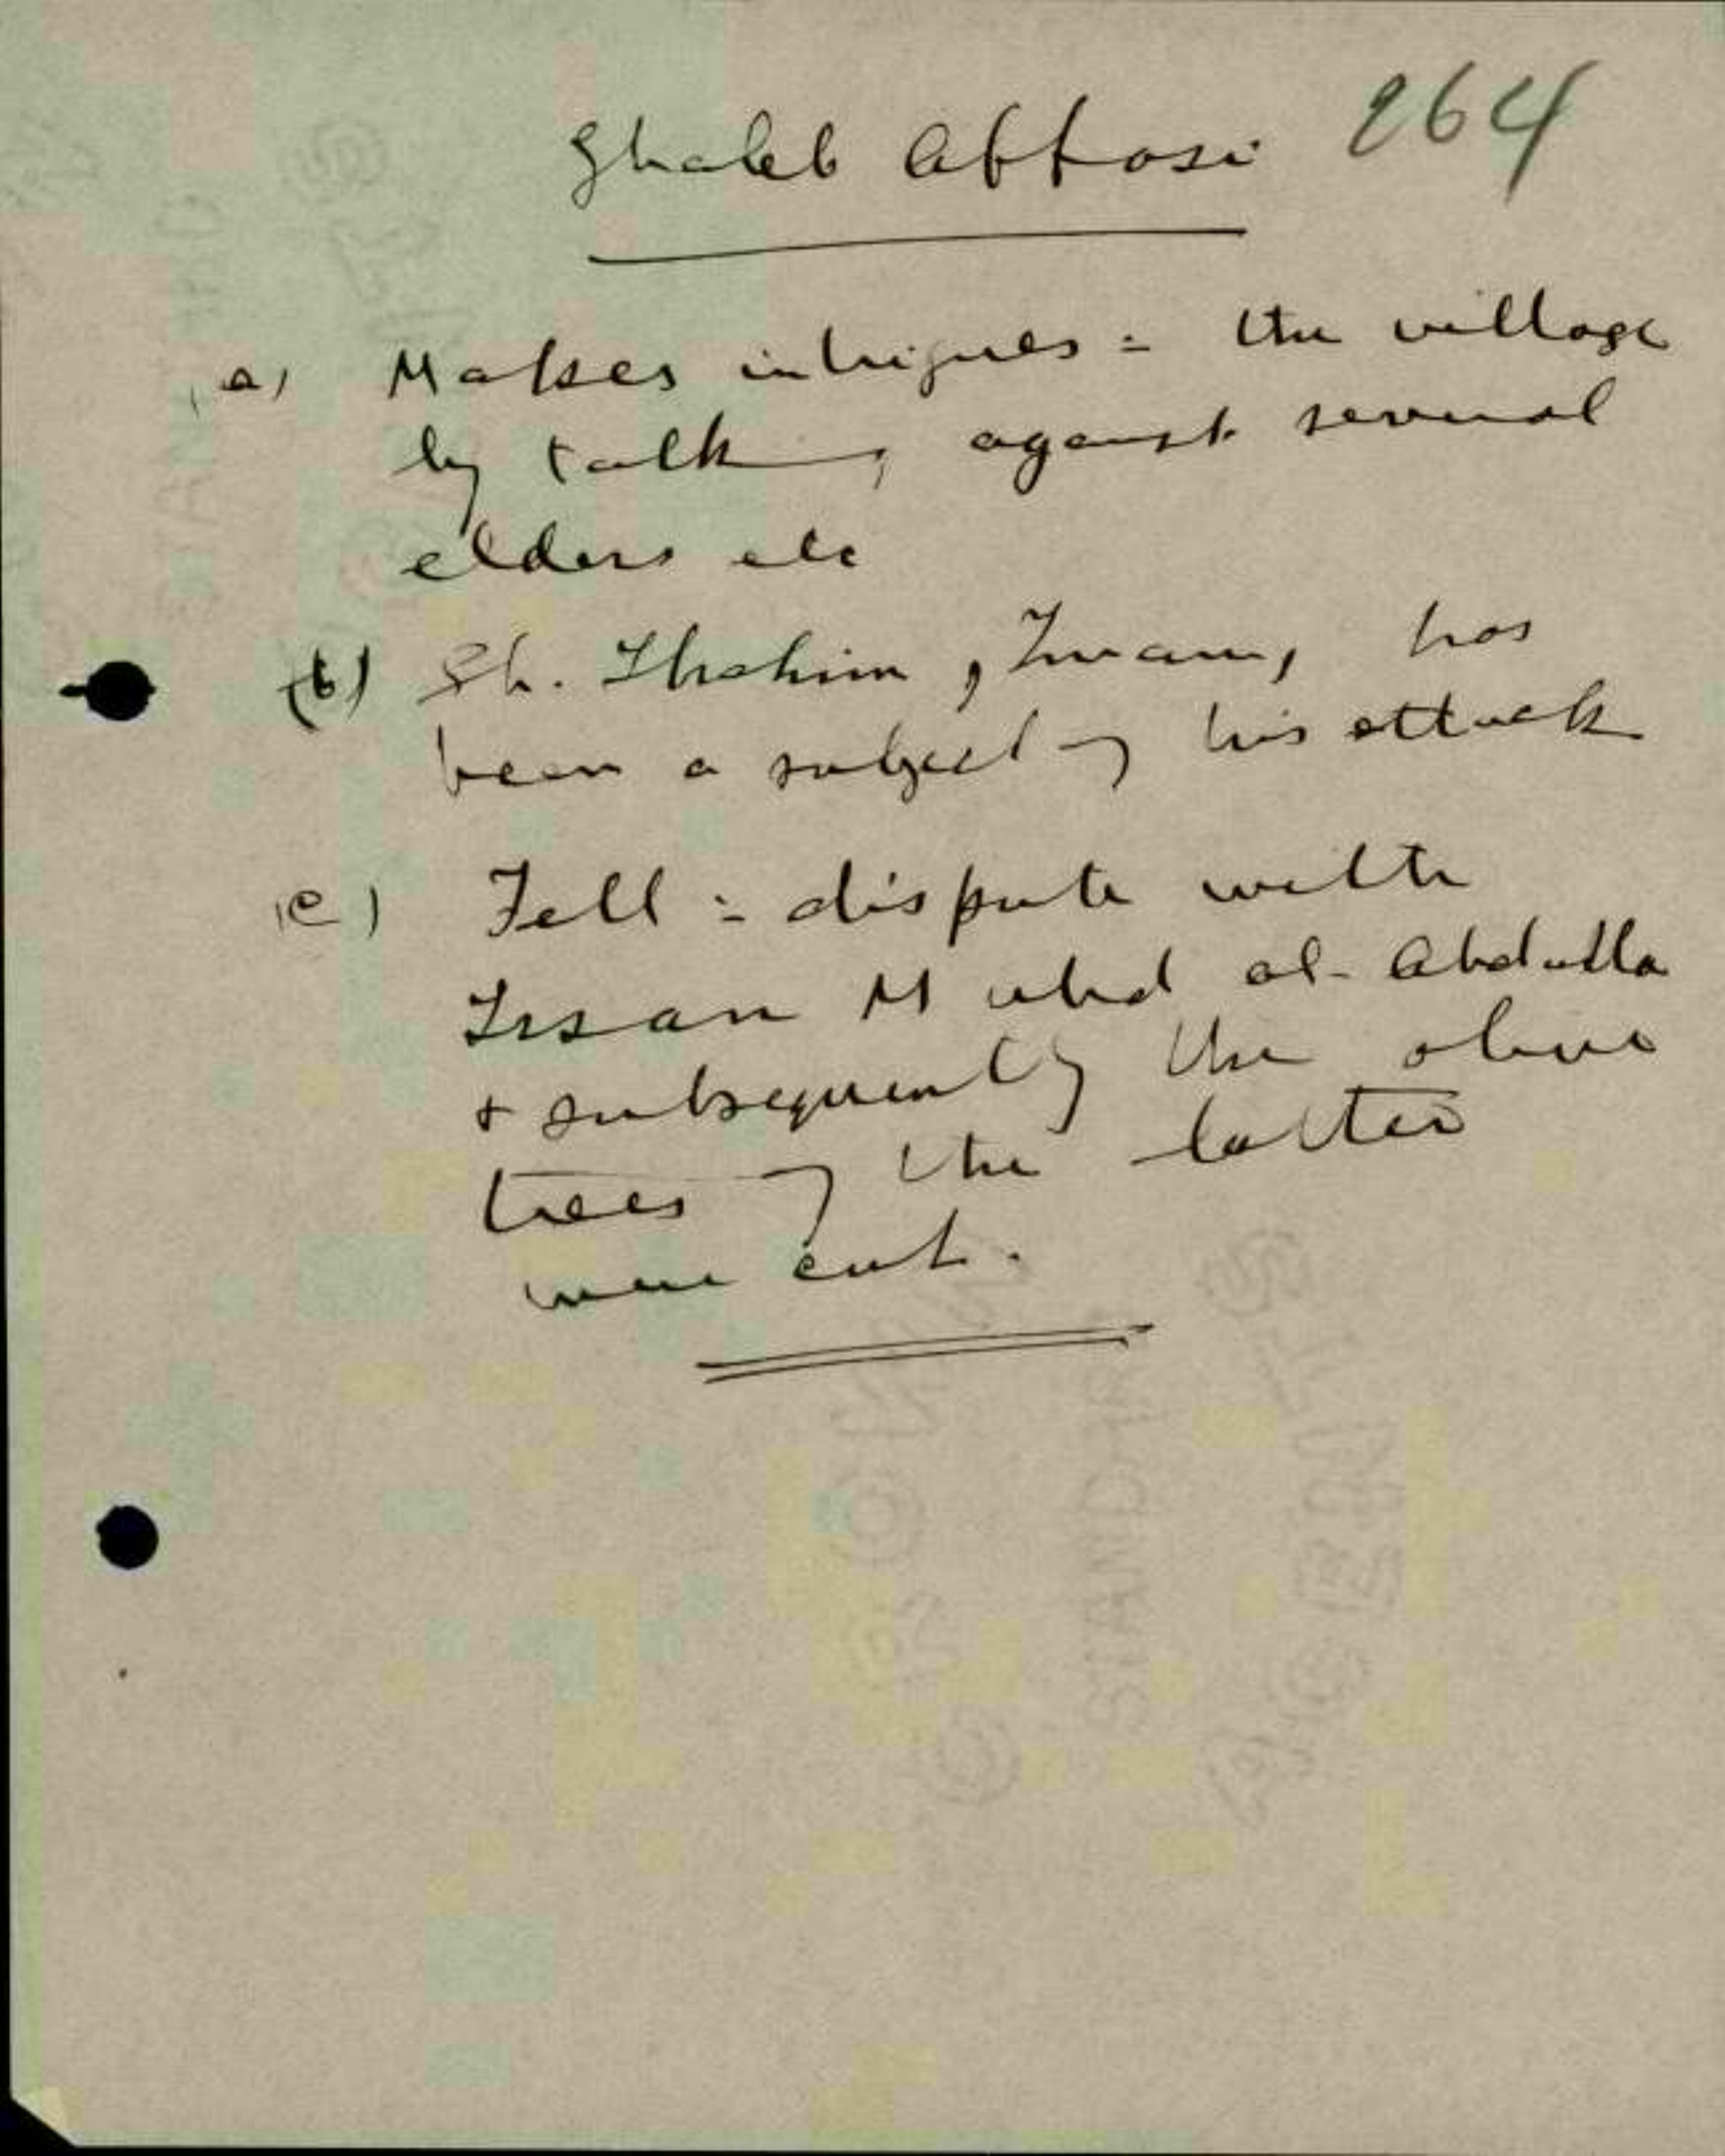 264
Ghaleb Abbosi
(a) Makes intrigues in the village
by talking against several
elders etc
(b) Sh. Ibrahim, Imam, has
been a subject of his attack
(c) Fell in dispute with
Issan al-Abdulla
& subsequently the olive
trees of the latter
were cut.